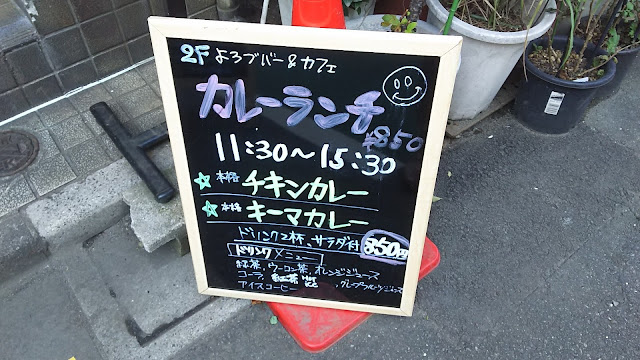 2F よろづバー&カフェ
カレーランチ
¥850
11:30〜15:30
☆本格 チキンカレー
☆本格 キーマカレー
ドリンク2杯、サラダ付 850円
ドリンクメニュー
紅茶、ウーロン茶、オレンジジュース
コーラ、紅茶 HOT ICE
アイスコーヒー、グレープフルーツジュース